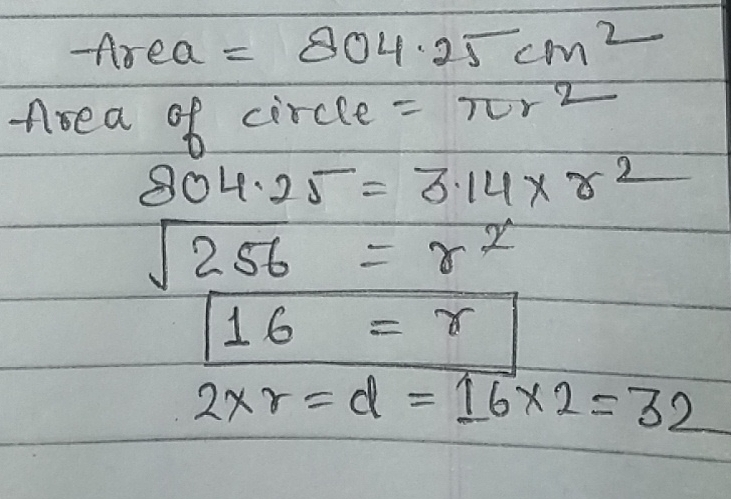 Area = 804.25 cm²
Area of circle = πr²
804.25 = 3.14 × r²
√256 = r²
16 = r
2×r = d = 16×2 = 32